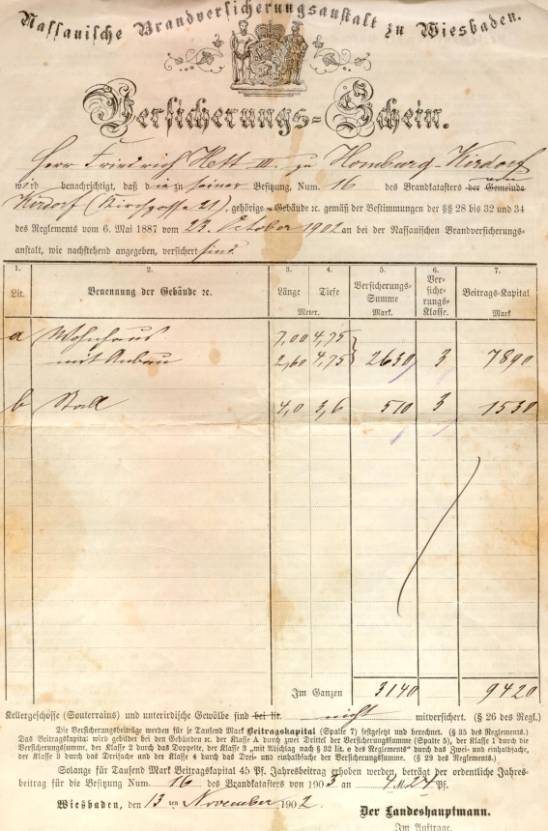 Nassauische Brandversicherungsanstalt zu Wiesbaden.
Versicherungs-Schein.
Herr Friedrich Hett III. zu Homburg-Kirdorf
wird benachrichtigt, daß die zu seiner Besitzung, Num. 16 des Brandkatasters der Gemeinde von
Kirdorf (Kirchgasse 21), gehörige Gebäude ꝛc. gemäß der Bestimmungen der §§ 28 bis 32 und 34
des Reglements vom 6. Mai 1887 vom 23. October 1902 an bei der Nassauischen Brandversicherungs-
anstalt, wie nachstehend angegeben, versichert sind.
1. 2. 3. 4. 5. 6. 7.
Lit. Benennung der Gebäude ꝛc. Länge Tiefe Versicherungs-Summe Ver-siche-rungs-Klasse. Beitrags-Kapital
Meter. Mark. Mark
a Wohnhaus 7,00 4,75
mit Anbau 2,60 4,75 2630 3 7890
b Stall 4,0 3,6 510 3 1530
Im Ganzen 3140 9420
Kellergeschosse (Souterrains) und unterirdische Gewölbe sind bei lit. nicht mitversichert. (§ 26 des Regl.)
Die Versicherungsbeiträge werden für je Tausend Mark Beitragskapital (Spalte 7) festgesetzt und berechnet. (§ 35 des Reglements.)
Das Beitragskapital wird gebildet bei den Gebäuden ꝛc. der Klasse A durch zwei Drittel der Versicherungssumme (Spalte 5), der Klasse 1 durch die
Versicherungssumme, der Klasse 2 durch das Doppelte, der Klasse 3 „mit Abschlag nach § 32 lit. e des Reglements“ durch das Zwei- und einhalbfache,
der Klasse 3 durch das Dreifache und der Klasse 4 durch das Drei- und einhalbfache der Versicherungssumme. (§ 29 des Reglements.)
Solange für Tausend Mark Beitragskapital 45 Pf. Jahresbeitrag erhoben werden, beträgt der ordentliche Jahres-
beitrag für die Besitzung Num. 16 des Brandkatasters von 1903 an 4 M. 24 Pf.
Wiesbaden, den 13ten November 1902.
Der Landeshauptmann.
Im Auftrage.